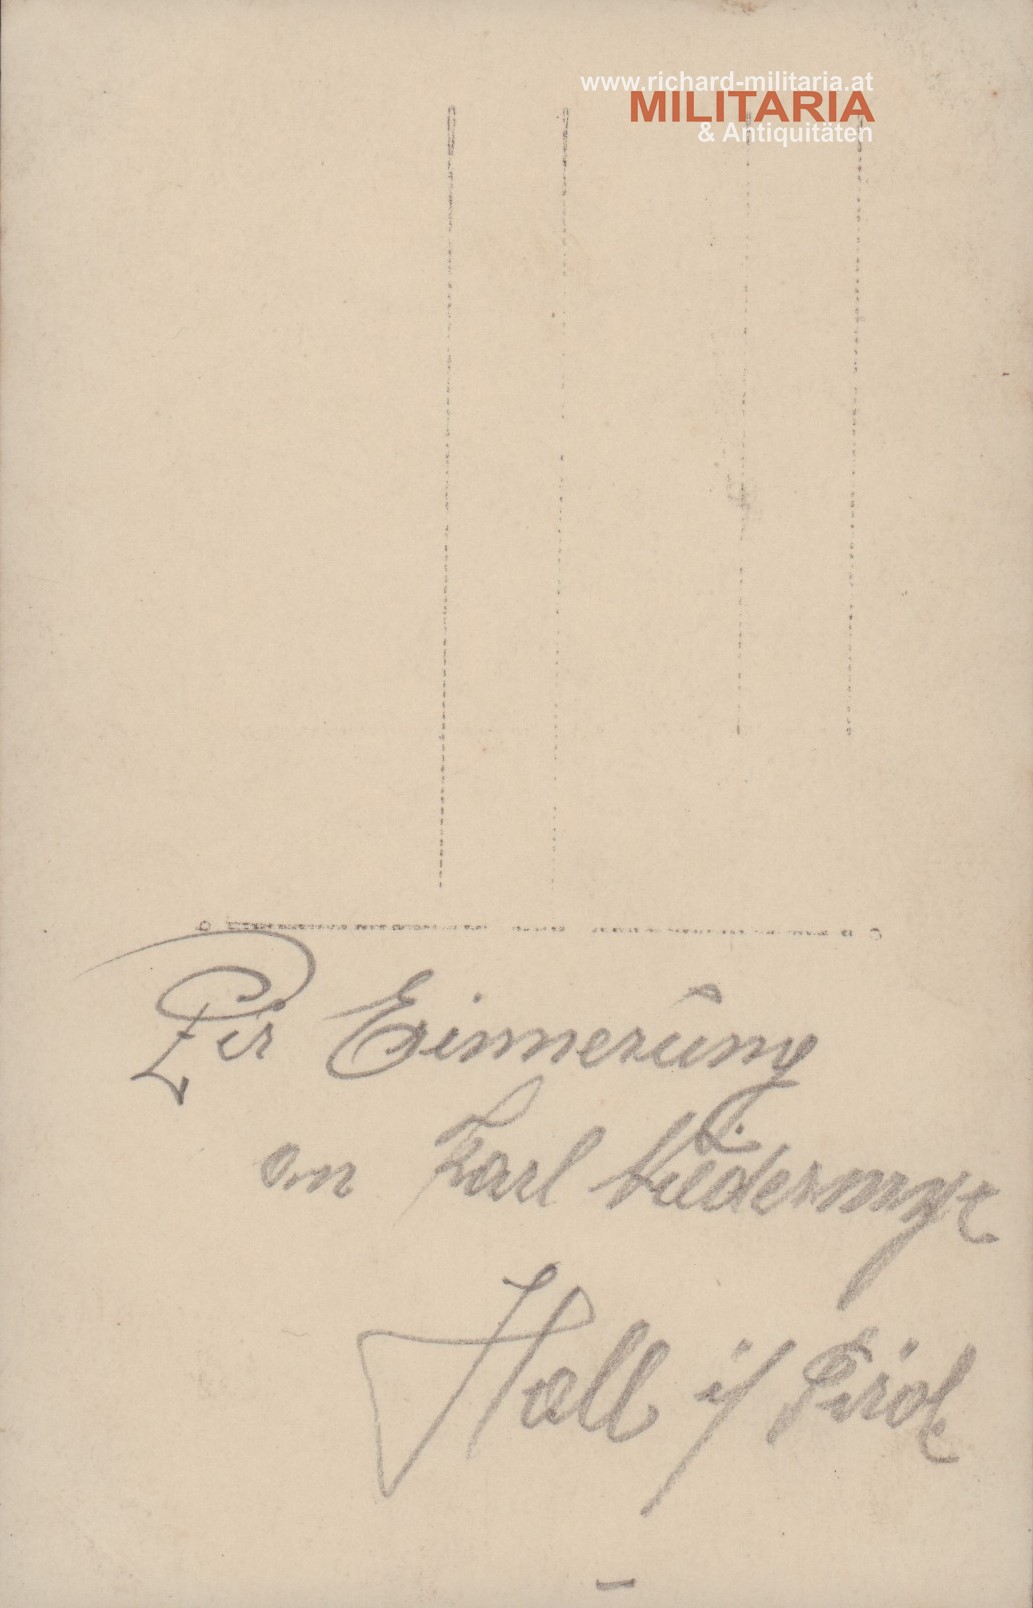 www.richard-militaria.at
MILITARIA
& Antiquitäten
Zur Erinnerung
an Karl
Hall i/ Tirol